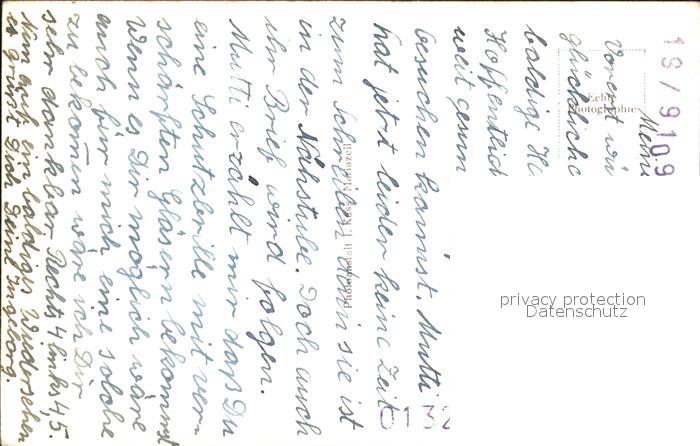 Meine
Vorerst wü
glückliche
baldige He
Hoffentlich
weit gesun
besuchen kannst. Mutti
hat jetzt leider keine Zeit
zum Schreiben denn sie ist
in der Nähstube. Doch auch
ihr Brief wird folgen.
Mutti erzählt mir daß Du
eine Schutzbrille mit ver-
schärften Gläsern bekommst
Wenn es Dir möglich wäre
auch für mich eine solche
zu bekommen wäre ich Dir
sehr dankbar Rechts 4 links 4,5.
Nun auf ein baldiges Wiedersehen
es grüßt Dich Deine Ingeborg.
Echte
Photographie
19/9109
0132
privacy protection
Datenschutz